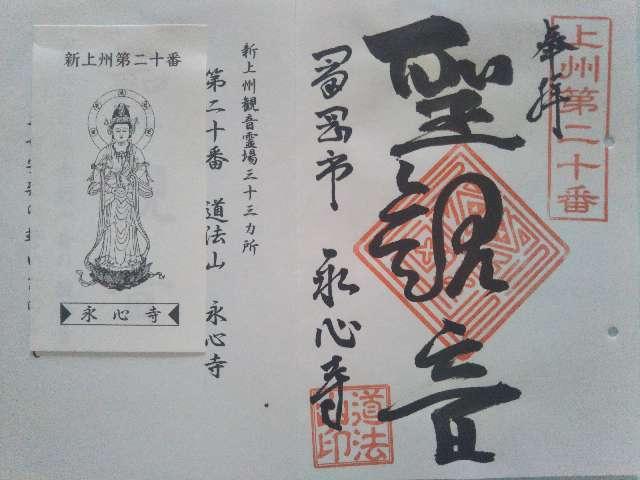 上州第二十番
奉拝
聖観音
富岡市 永心寺
道法山印
新上州観音霊場三十三カ所
第二十番 道法山 永心寺
新上州第二十番
永心寺